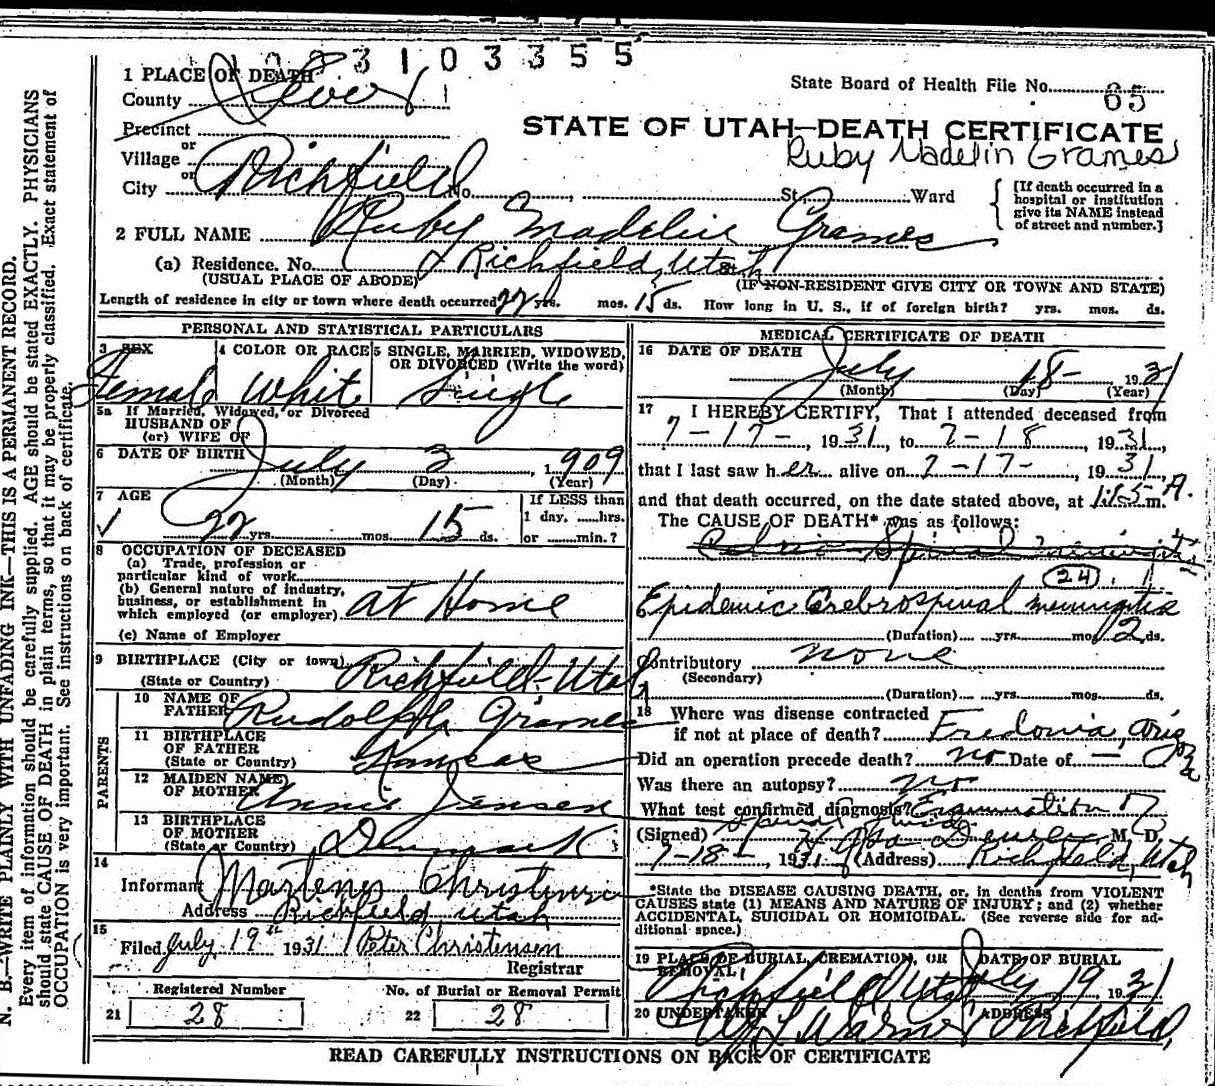 3103355
1 PLACE OF DEATH
County Sevier
State Board of Health File No. 65
STATE OF UTAH—DEATH CERTIFICATE
Ruby Madelin Grames
Precinct
or
Village
or
City Richfield No. St. Ward
[If death occurred in a
hospital or institution
give its NAME instead
of street and number.]
2 FULL NAME Ruby Madelin Grames
(a) Residence. No. Richfield, Utah
(USUAL PLACE OF ABODE) (IF NON-RESIDENT GIVE CITY OR TOWN AND STATE)
Length of residence in city or town where death occurred 22 yrs. mos. 15 ds. How long in U. S., if of foreign birth? yrs. mos. ds.
PERSONAL AND STATISTICAL PARTICULARS
3 SEX Female
4 COLOR OR RACE White
5 SINGLE, MARRIED, WIDOWED,
OR DIVORCED (Write the word)
Single
5a If Married, Widowed, or Divorced
HUSBAND OF
(or) WIFE OF
6 DATE OF BIRTH July 3, 1909
(Month) (Day) (Year)
7 AGE
22 yrs. mos. 15 ds.
If LESS than
1 day, hrs.
or min.?
8 OCCUPATION OF DECEASED
(a) Trade, profession or
particular kind of work
(b) General nature of industry,
business, or establishment in
which employed (or employer) at Home
(c) Name of Employer
9 BIRTHPLACE (City or town) Richfield-Utah
(State or Country)
PARENTS
10 NAME OF
FATHER Rudolph Grames
11 BIRTHPLACE
OF FATHER
(State or Country) Kansas
12 MAIDEN NAME
OF MOTHER Annie Jensen
13 BIRTHPLACE
OF MOTHER
(State or Country) Denmark
14
Informant Christensen
Address Richfield Utah
15
Filed July 19th 1931 Peter Christensen
Registrar
Registered Number No. of Burial or Removal Permit
21 28 22 28
MEDICAL CERTIFICATE OF DEATH
16 DATE OF DEATH
July 18- 1931
(Month) (Day) (Year)
17 I HEREBY CERTIFY, That I attended deceased from
7-17-, 1931, to 7-18, 1931,
that I last saw her alive on 7-17-, 1931,
and that death occurred, on the date stated above, at m. A.
The CAUSE OF DEATH* was as follows:
Spinal meningitis
24
Epidemic Cerebrospinal meningitis
(Duration) yrs. mos. 2 ds.
Contributory none
(Secondary)
(Duration) yrs. mos. ds.
18 Where was disease contracted
if not at place of death? Fredonia, Ariz
Did an operation precede death? no Date of —
Was there an autopsy? no
What test confirmed diagnosis? Examination of
spinal fluid
(Signed) M. D.
7-18-, 1931 (Address) Richfield, Utah
*State the DISEASE CAUSING DEATH, or, in deaths from VIOLENT
CAUSES state (1) MEANS AND NATURE OF INJURY; and (2) whether
ACCIDENTAL, SUICIDAL OR HOMICIDAL. (See reverse side for ad-
ditional space.)
19 PLACE OF BURIAL, CREMATION, OR
REMOVAL
Richfield Utah
DATE OF BURIAL
July 19, 1931
20 UNDERTAKER ADDRESS
Richfield,
READ CAREFULLY INSTRUCTIONS ON BACK OF CERTIFICATE
N. B.—WRITE PLAINLY WITH UNFADING INK—THIS IS A PERMANENT RECORD.
Every item of information should be carefully supplied. AGE should be stated EXACTLY. PHYSICIANS
should state CAUSE OF DEATH in plain terms, so that it may be properly classified. Exact statement of
OCCUPATION is very important. See instructions on back of certificate.